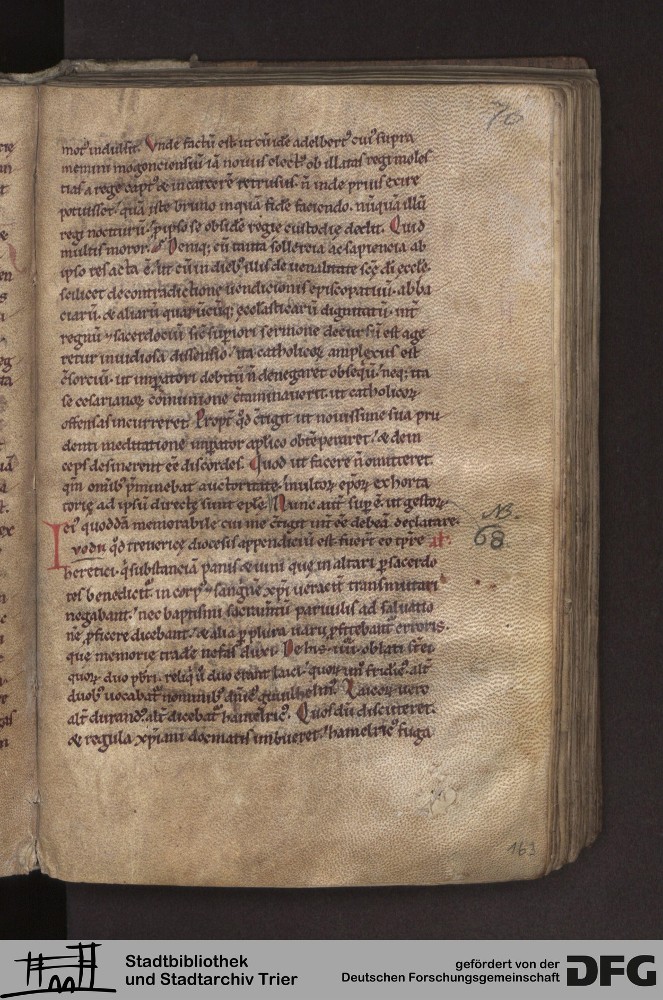 70
motꝰ indulsit. Vnde factū est ut eūde adelbertꝰ cuiꝰ supra
memini mogonciensiū iā nouiꝰ electꝰ ob illatas regi moles
tias a rege captꝰ & in carcerē retrusus. n̄ inde priꝰ exire
potuisset. quā iste bruno in qua fide faciendo. nūquā illū
regi nociturū. p ipso se obsidē regie custodie dedit. Quid
multis moror. Deniq; cū tanta sollercia ac sapiencia ab
ipso res acta ē. ut cū in diebꝰ illis de uenalitate scę di ecclē.
scilicet de contradictione uendicionis episcopatuū. abba
ciarū. & aliarū quarūcūq; ecclasticarū dignitatū. int̄
regnū ⁊ sacerdociū sic̄ supiori sermone decursū est age
retur inuidiosa dissensio. ita catholicoꝝ amplexus est
c̄sorciū. ut imꝑatori debitū n̄ denegaret obseqū. neq; ita
se cesarianoꝝ cōmunione c̄taminauerit. ut catholicoꝝ
offensas incurreret. Propt̄ qd̄ c̄tigit ut nouissime sua pru
denti meditatione imꝑator aplico obtēperaret. & dein
ceps desinerent eē discordes. Quod ut facere n̄ omitteret.
qm̄ omībꝰ p̄minebat auctoritate. multoꝝ epōꝝ exhorta
torie ad ipsū directe sunt eplę. Nunc aut̄ sup ē. ut gestoꝝ
eiꝰ quoddā memorabile cui me c̄tigit int̄ eē debeā declarare.
NB.
Ivodii qd̄ treuericę diocesis appendiciū est fuerī eo tp̄re at
68
heretici. q̄ substanciā panis & uini que in altari p sacerdo
tes benedicit̄. in corpꝰ ⁊ sanguinē xpi ueracit̄ transmutari
negabant. nec baptismi sacramtū paruulis ad saluatio
nē ꝓficere dicebant. & alia p plura uarii ꝓfitebant̄ erroris.
que memorie tradē nefas duxi. De his .iiii. oblati st̄ ei.
quoꝝ duo pbri. reliqi duo erant laici. quoꝝ unꝰ fridicꝰ. alt̄
duobꝰ uocabat̄ nominibꝰ dn̄icꝰ. guuilhelmꝰ. Laicoꝝ uero
alt̄ durandꝰ. alt̄ dicebat̄ hamelricꝰ. Quos dū discuteret.
& regula xp̄iani docmatis imbueret. hamelricꝰ fuga
163
Stadtbibliothek
und Stadtarchiv Trier
gefördert von der
Deutschen Forschungsgemeinschaft
DFG